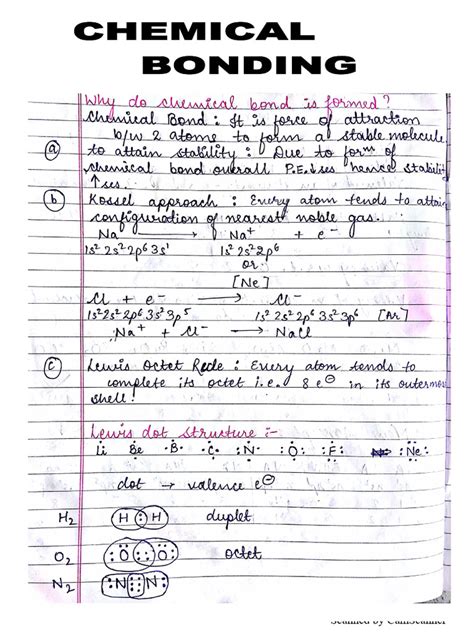 CHEMICAL
BONDING
Why do chemical bond is formed?
Chemical Bond : It is force of attraction
b/w 2 atoms to form a stable molecule
(a) to attain stability : Due to formⁿ of
chemical bond overall P.E. ↓ses hence stability
↑ses.
(b) Kossel approach : Every atom tends to attain
configuration of nearest noble gas.
Na ⟶ Na⁺ + e⁻
1s² 2s² 2p⁶ 3s¹ 1s² 2s² 2p⁶
or
[Ne]
Cl + e⁻ ⟶ Cl⁻
1s² 2s² 2p⁶ 3s² 3p⁵ 1s² 2s² 2p⁶ 3s² 3p⁶ [Ar]
Na⁺ + Cl⁻ ⟶ NaCl
(c) Lewis Octet Rule : Every atom tends to
complete its octet i.e. 8 e⊖ in its outermos
shell!
Lewis dot structure :-
Li Be B C N O F Ne
dot → valence e⊖
H₂ H : H duplet
O₂ O :: O octet
N₂ N N
Scanned by CamScanner